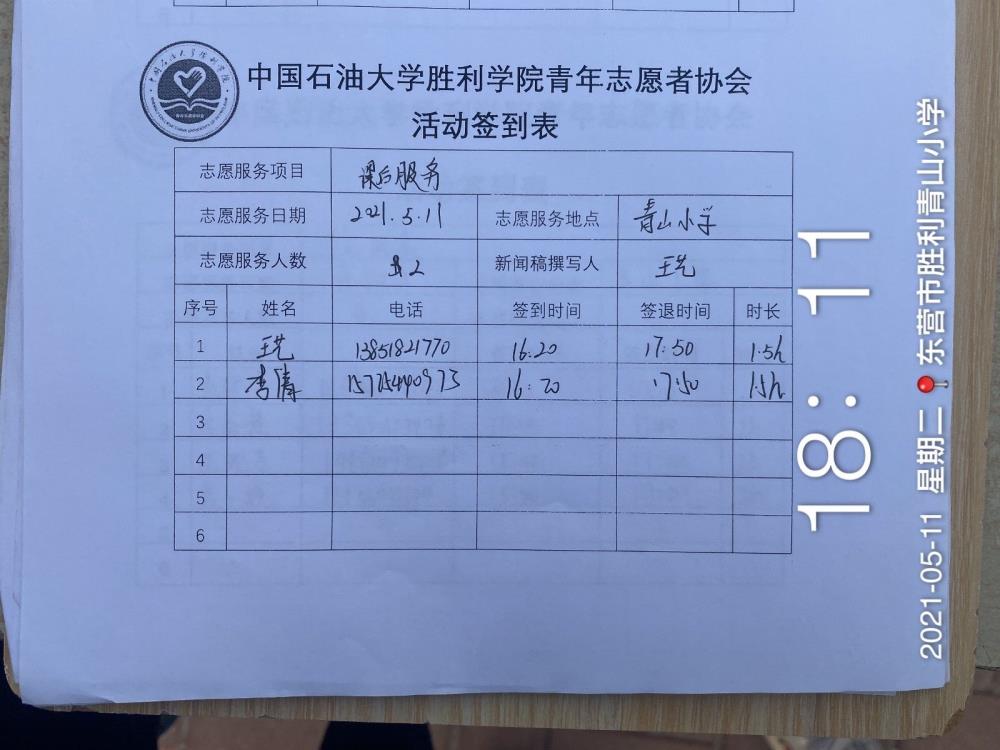 中国石油大学胜利学院青年志愿者协会
活动签到表
志愿服务项目 课后服务
志愿服务日期 2021.5.11 志愿服务地点 青山小学
志愿服务人数 2 新闻稿撰写人 王艺
序号 姓名 电话 签到时间 签退时间 时长
1 王艺 13851821770 16:20 17:50 1.5h
2 李清 16:20 17:50 1.5h
3
4
5
6
18:11
2021-05-11 星期二 东营市胜利青山小学